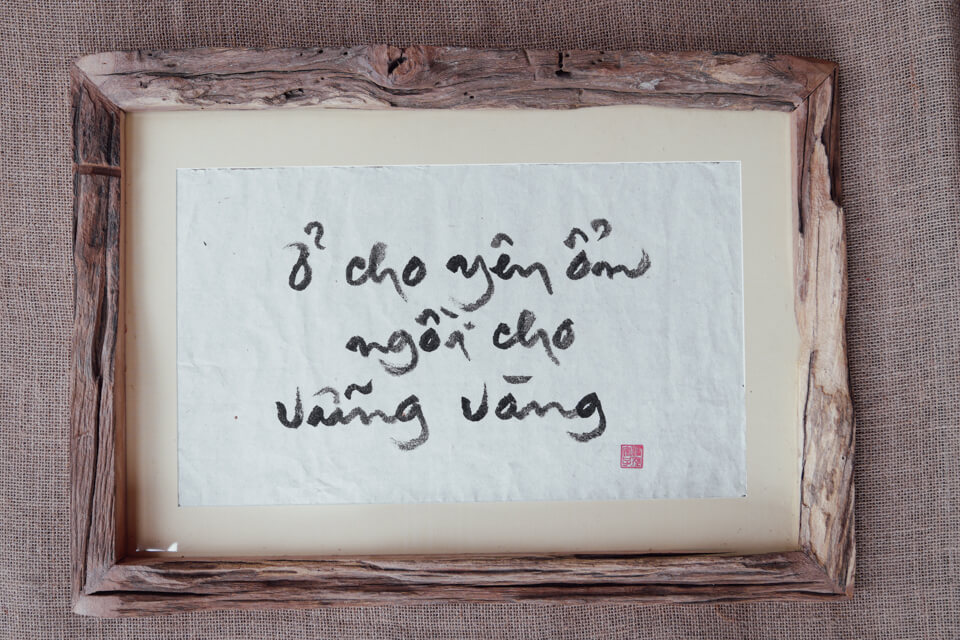 ở cho yên ổn
ngồi cho
vững vàng